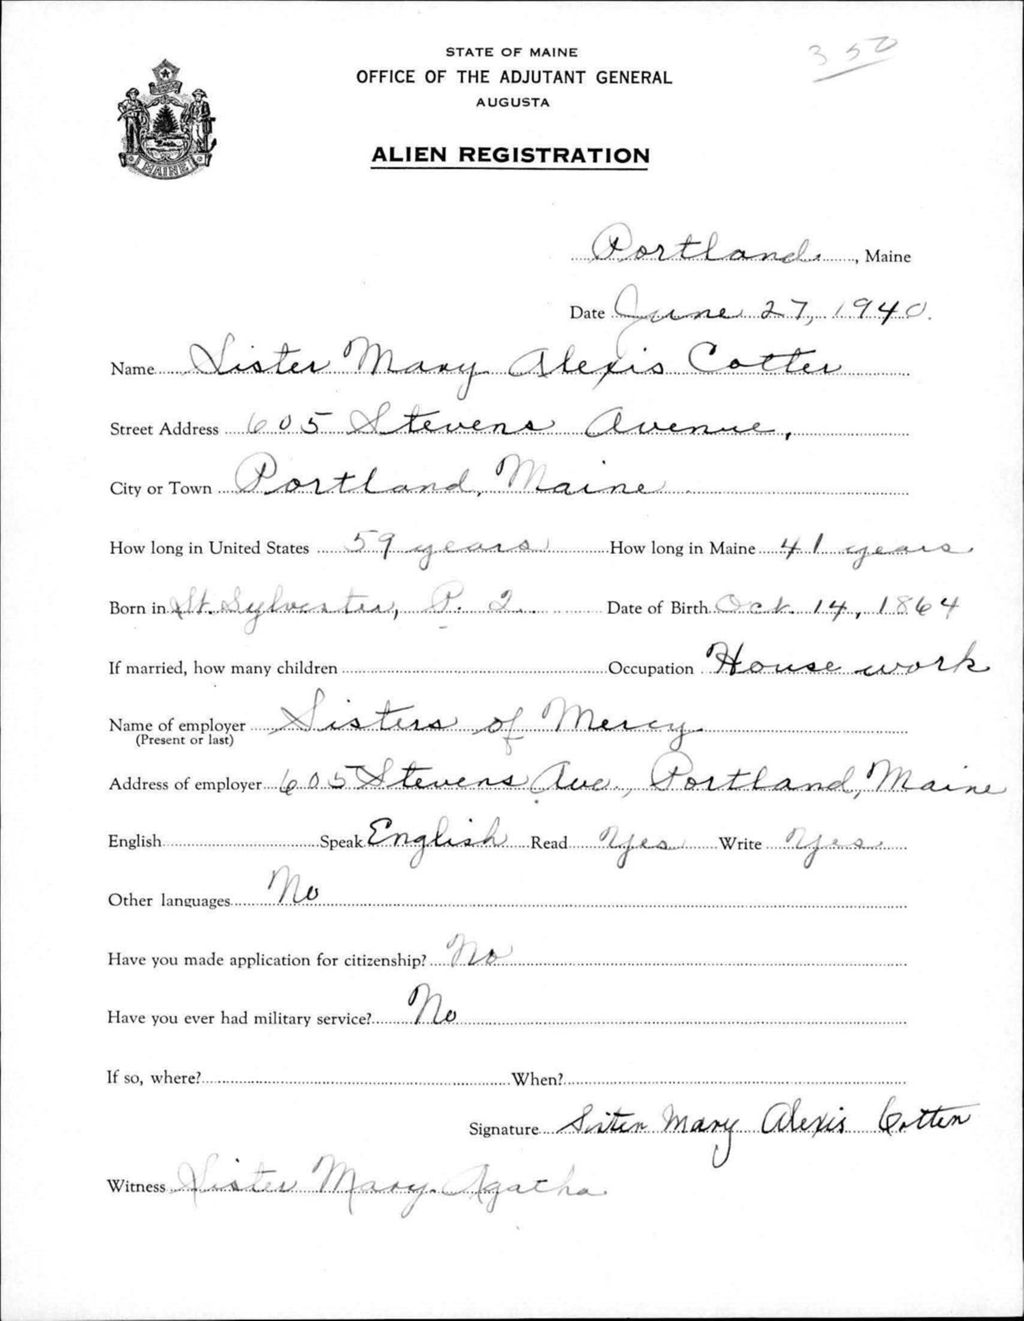 350
STATE OF MAINE
OFFICE OF THE ADJUTANT GENERAL
AUGUSTA
ALIEN REGISTRATION
MAINE
Portland, Maine
Date June 27, 1940.
Name Sister Mary Alexis Cotter
Street Address 605 Stevens Avenue,
City or Town Portland, Maine
How long in United States 59 years How long in Maine 41 years
Born in St. Sylvester, P. Q. Date of Birth Oct. 14, 1864
If married, how many children Occupation House work
Name of employer Sisters of Mercy
(Present or last)
Address of employer 605 Stevens Ave., Portland, Maine
English Speak English Read Yes Write Yes
Other languages No
Have you made application for citizenship? No
Have you ever had military service? No
If so, where? When?
Signature Sister Mary Alexis Cotter
Witness Sister Mary Agatha